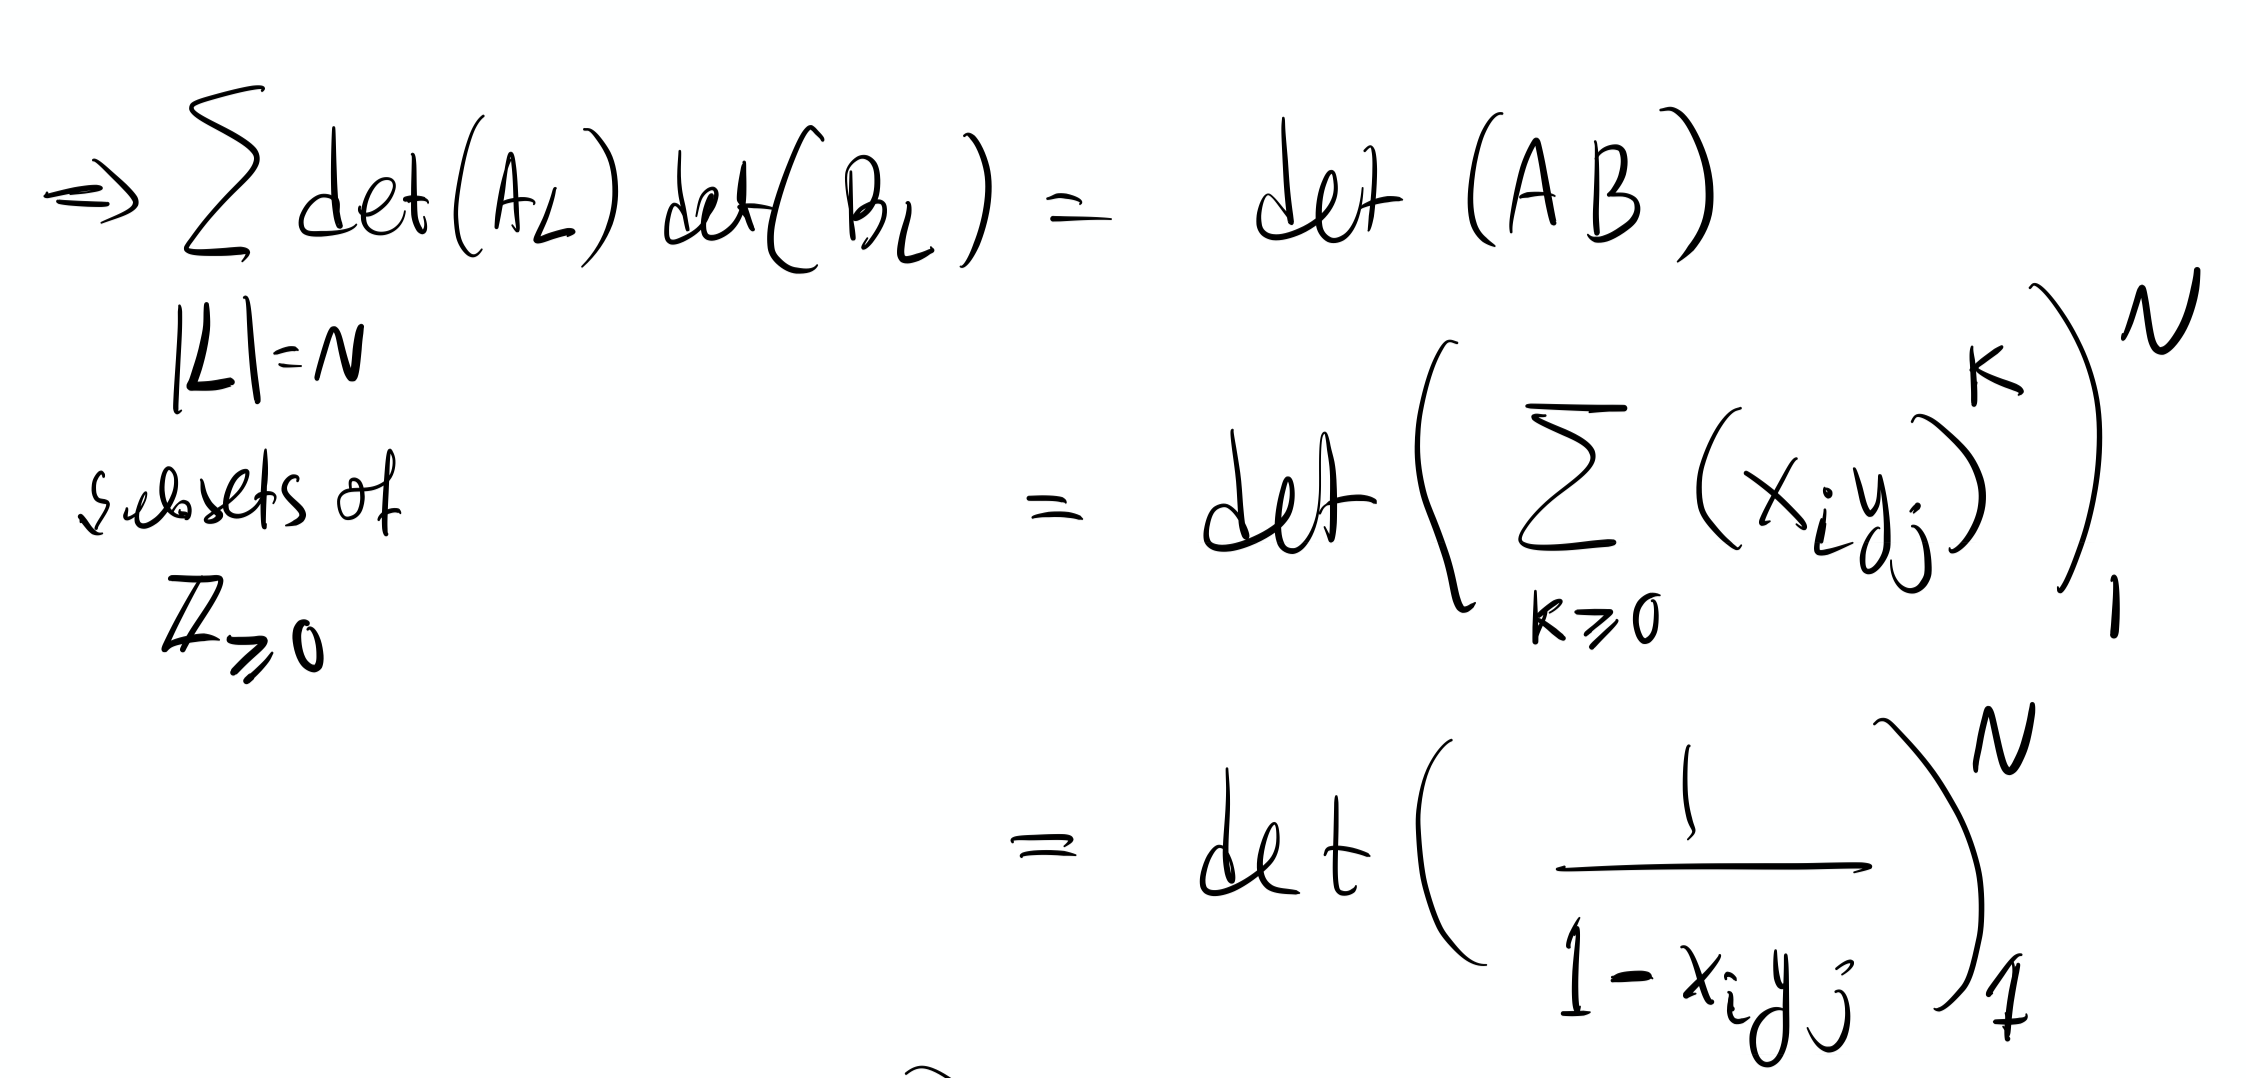 ⇒ ∑ det(A_L) det(B_L) = det (AB)
|L|=N
subsets of
ℤ_≥0
= det ( ∑_{k≥0} (x_i y_j)^k )_1^N
= det ( 1 / (1 - x_i y_j) )_1^N